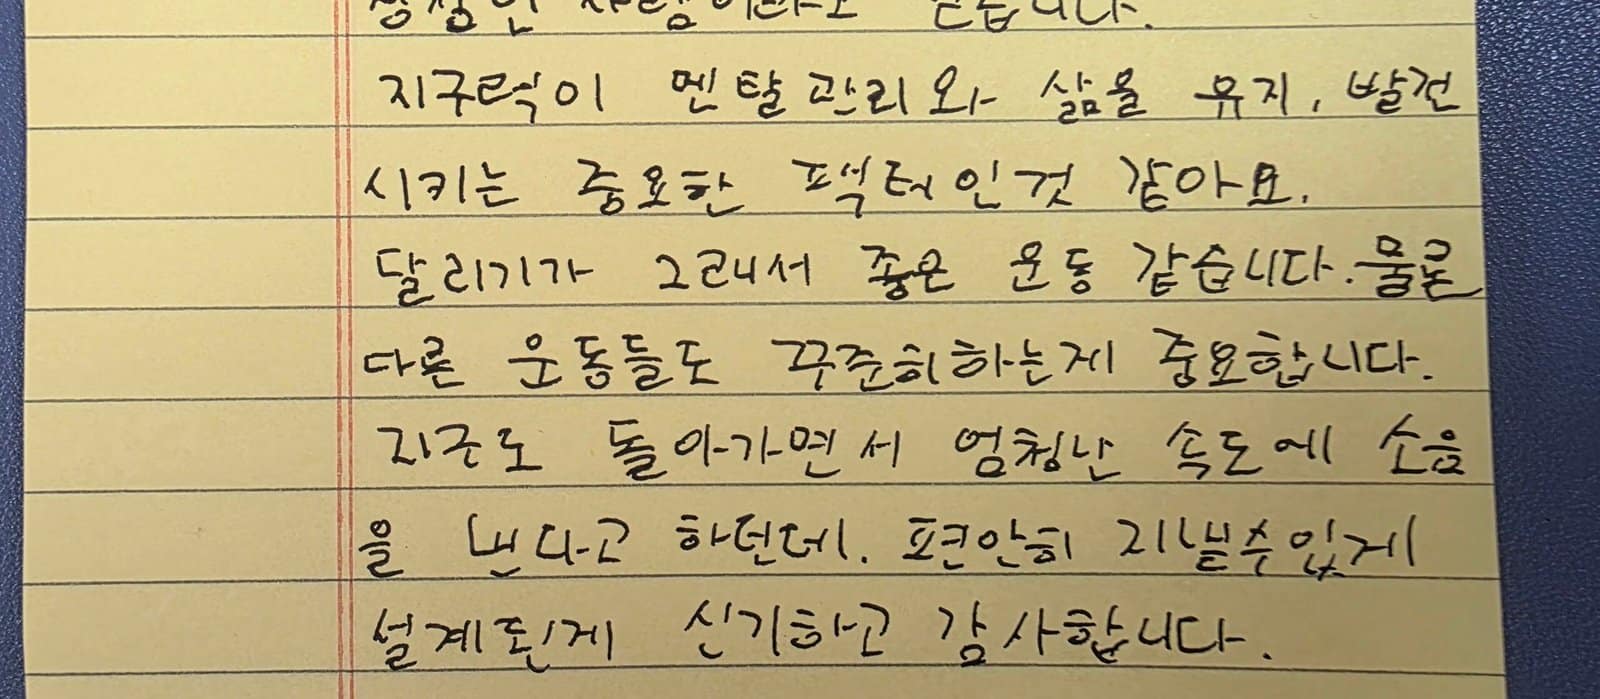 지구력이 멘탈관리와 삶을 유지, 발전
시키는 중요한 팩터인것 같아요.
달리기가 그래서 좋은 운동 같습니다. 물론
다른 운동들도 꾸준히하는게 중요합니다.
지구도 돌아가면서 엄청난 속도에 소음
을 낸다고 하던데. 편안히 지낼수있게
설계된게 신기하고 감사합니다.